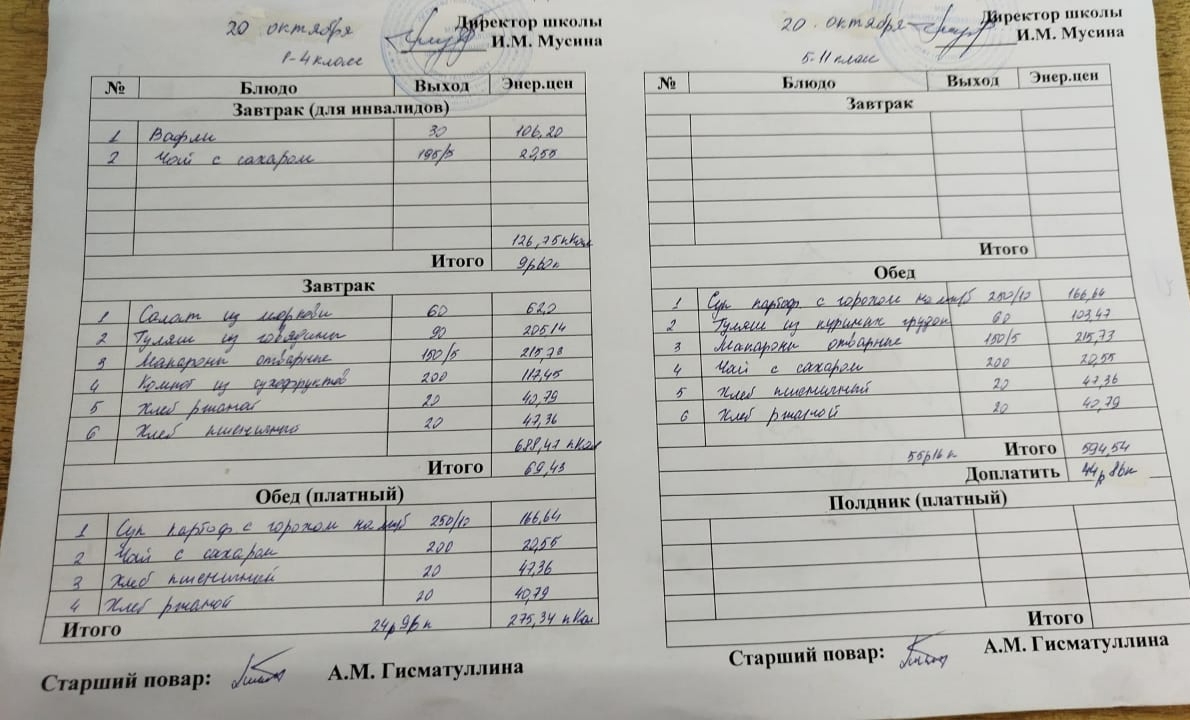 20 октября
Директор школы
И.М. Мусина
1-4 класс
№ Блюдо Выход Энер.цен
Завтрак (для инвалидов)
1 Вафли 30 106,20
2 Чай с сахаром 195/5 20,55
126,75 кКал
Итого 9р60к
Завтрак
1 Салат из моркови 60 62,0
2 Гуляш из говядины 90 205,14
3 Макароны отварные 150/5 215,73
4 Компот из сухофруктов 200 117,45
5 Хлеб ржаной 20 40,79
6 Хлеб пшеничный 20 47,36
688,47 кКал
Итого 69,43
Обед (платный)
1 Суп картоф. с горохом на м/б 250/10 166,64
2 Чай с сахаром 200 20,55
3 Хлеб пшеничный 20 47,36
4 Хлеб ржаной 20 40,79
Итого 24р96к 275,34 кКал
Старший повар: А.М. Гисматуллина
20 октября
Директор школы
И.М. Мусина
5-11 класс
№ Блюдо Выход Энер.цен
Завтрак
Итого
Обед
1 Суп картоф. с горохом на м/б 250/10 166,64
2 Гуляш из куриных грудок 60 103,47
3 Макароны отварные 150/5 215,73
4 Чай с сахаром 200 20,55
5 Хлеб пшеничный 20 47,36
6 Хлеб ржаной 20 40,79
55р16к Итого 594,54
Доплатить 44р86к
Полдник (платный)
Итого
Старший повар: А.М. Гисматуллина